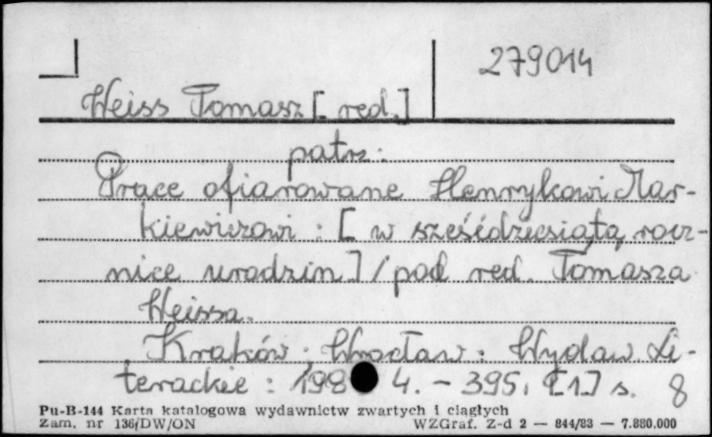 279014
Weiss Tomasz [red.]
patrz:
Prace ofiarowane Henrykowi Mar-
kiewiczowi : [w sześćdziesiątą rocz-
nicę urodzin] / pod red. Tomasza
Weissa.
Kraków ; Wrocław : Wydaw. Li-
terackie : 1984. - 395, [1] s. 8
Pu-B-144 Karta katalogowa wydawnictw zwartych i ciągłych
Zam. nr 136/DW/ON WZGraf. Z-d 2 — 844/83 — 7.880.000